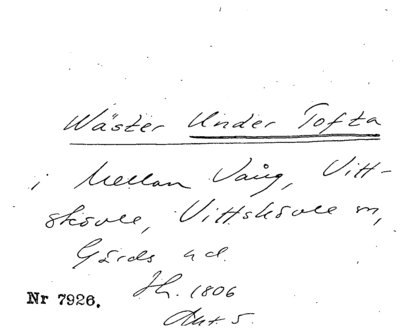 Wäster Under Tofta
i Mellan Vång, Vitt-
skövle, Vittskövle sn,
Gärds hd.
Jh. 1806
Akt 5.
Nr 7926.